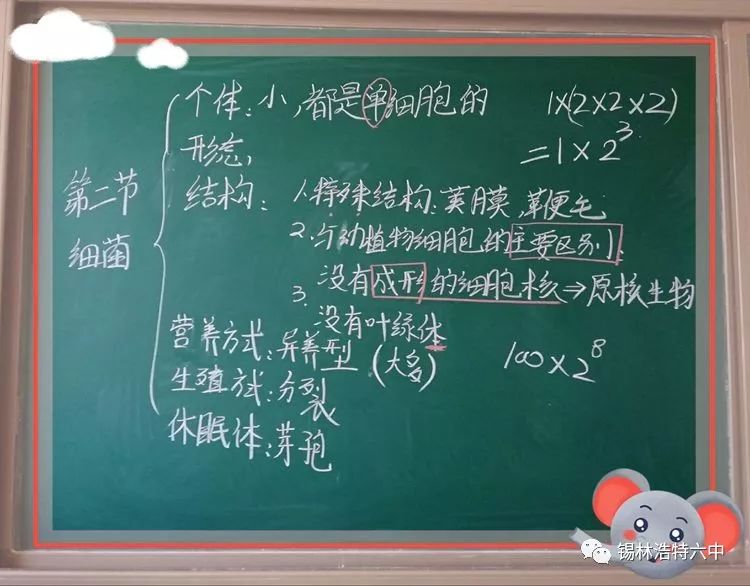 第二节
细菌
个体:小,都是单细胞的
形态,
结构:1.特殊结构:荚膜,鞭毛
2.与动植物细胞的主要区别
没有成形的细胞核⇒原核生物
3.没有叶绿体
营养方式:异养型(大多)
生殖方式:分裂
休眠体:芽孢
1×(2×2×2)
=1×2³
100×2⁸
锡林浩特六中